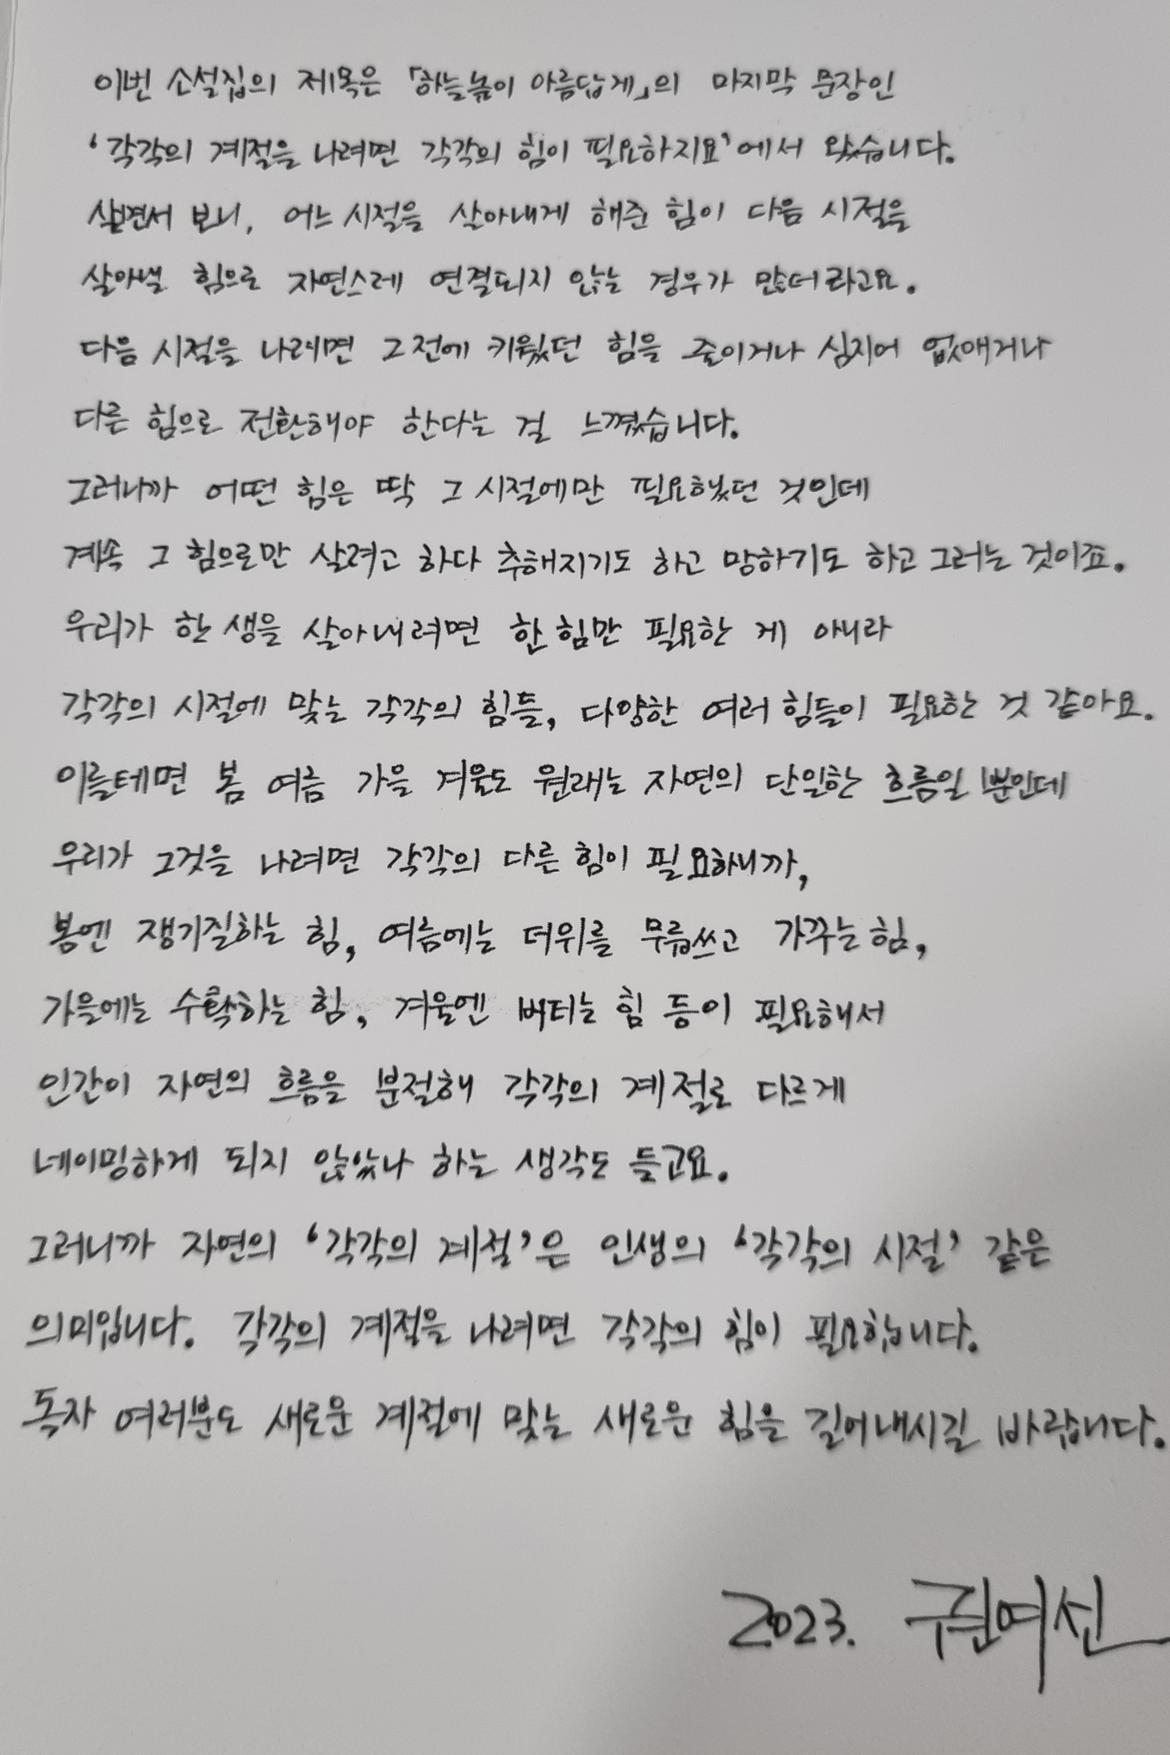 이번 소설집의 제목은 「하늘높이 아름답게」의 마지막 문장인
‘각각의 계절을 나려면 각각의 힘이 필요하지요’에서 왔습니다.
살면서 보니, 어느 시절을 살아내게 해준 힘이 다음 시절을
살아낼 힘으로 자연스레 연결되지 않는 경우가 많더라고요.
다음 시절을 나려면 그전에 키웠던 힘을 줄이거나 심지어 없애거나
다른 힘으로 전환해야 한다는 걸 느꼈습니다.
그러니까 어떤 힘은 딱 그 시절에만 필요했던 것인데
계속 그 힘으로만 살려고 하다 추해지기도 하고 망하기도 하고 그러는 것이죠.
우리가 한 생을 살아내려면 한 힘만 필요한 게 아니라
각각의 시절에 맞는 각각의 힘들, 다양한 여러 힘들이 필요한 것 같아요.
이를테면 봄 여름 가을 겨울도 원래는 자연의 단일한 흐름일 뿐인데
우리가 그것을 나려면 각각의 다른 힘이 필요하니까,
봄엔 쟁기질하는 힘, 여름에는 더위를 무릅쓰고 가꾸는 힘,
가을에는 수확하는 힘, 겨울엔 버티는 힘 등이 필요해서
인간이 자연의 흐름을 분절해 각각의 계절로 다르게
네이밍하게 되지 않았나 하는 생각도 들고요.
그러니까 자연의 ‘각각의 계절’은 인생의 ‘각각의 시절’ 같은
의미입니다. 각각의 계절을 나려면 각각의 힘이 필요합니다.
독자 여러분도 새로운 계절에 맞는 새로운 힘을 길어내시길 바랍니다.
2023. 권여선